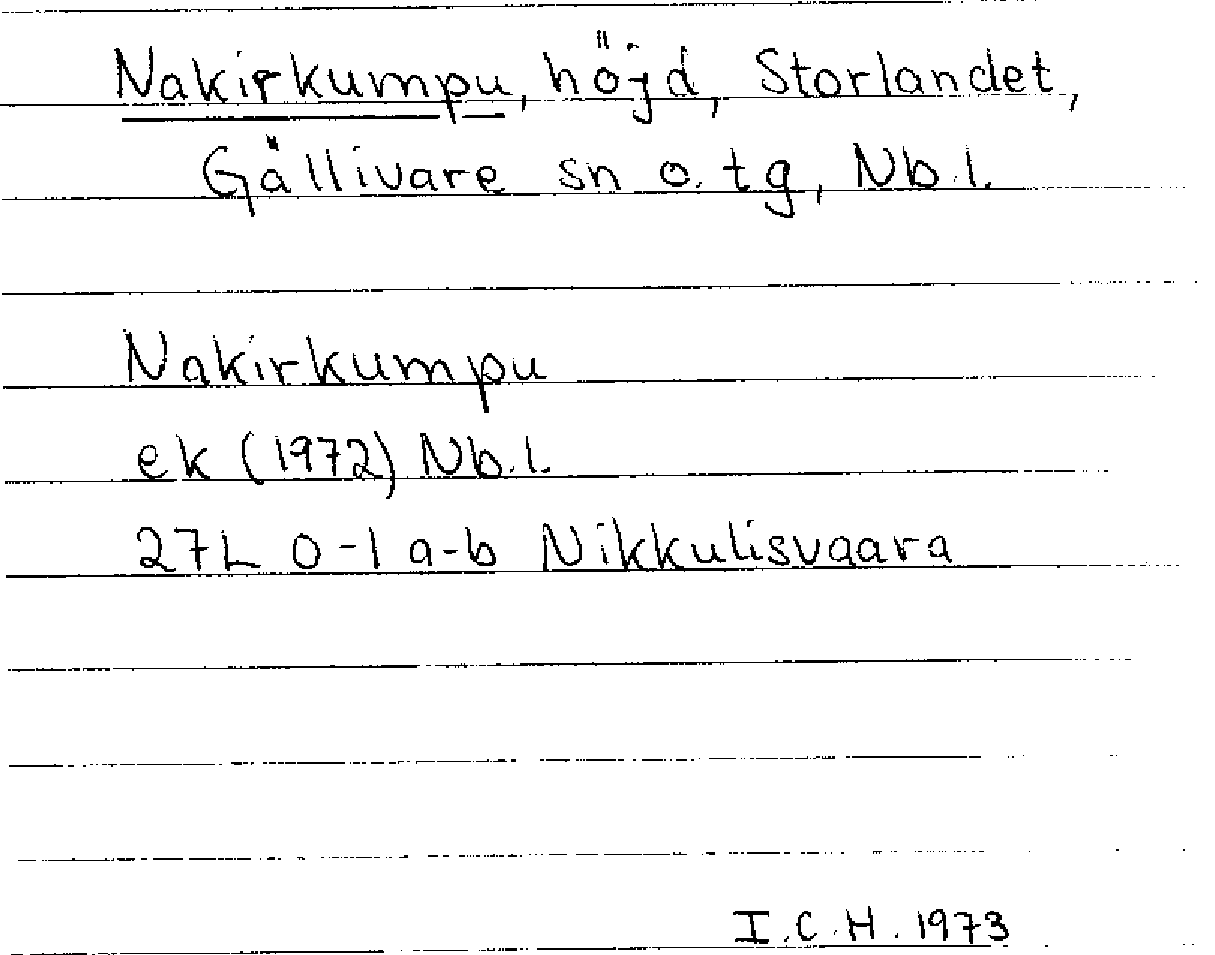 Nakirkumpu, höjd, Storlandet,
Gällivare sn o. tg, Nb.l.
Nakirkumpu
ek (1972) Nb.l.
27L 0-1 a-b Nikkulisvaara
I.C.H. 1973